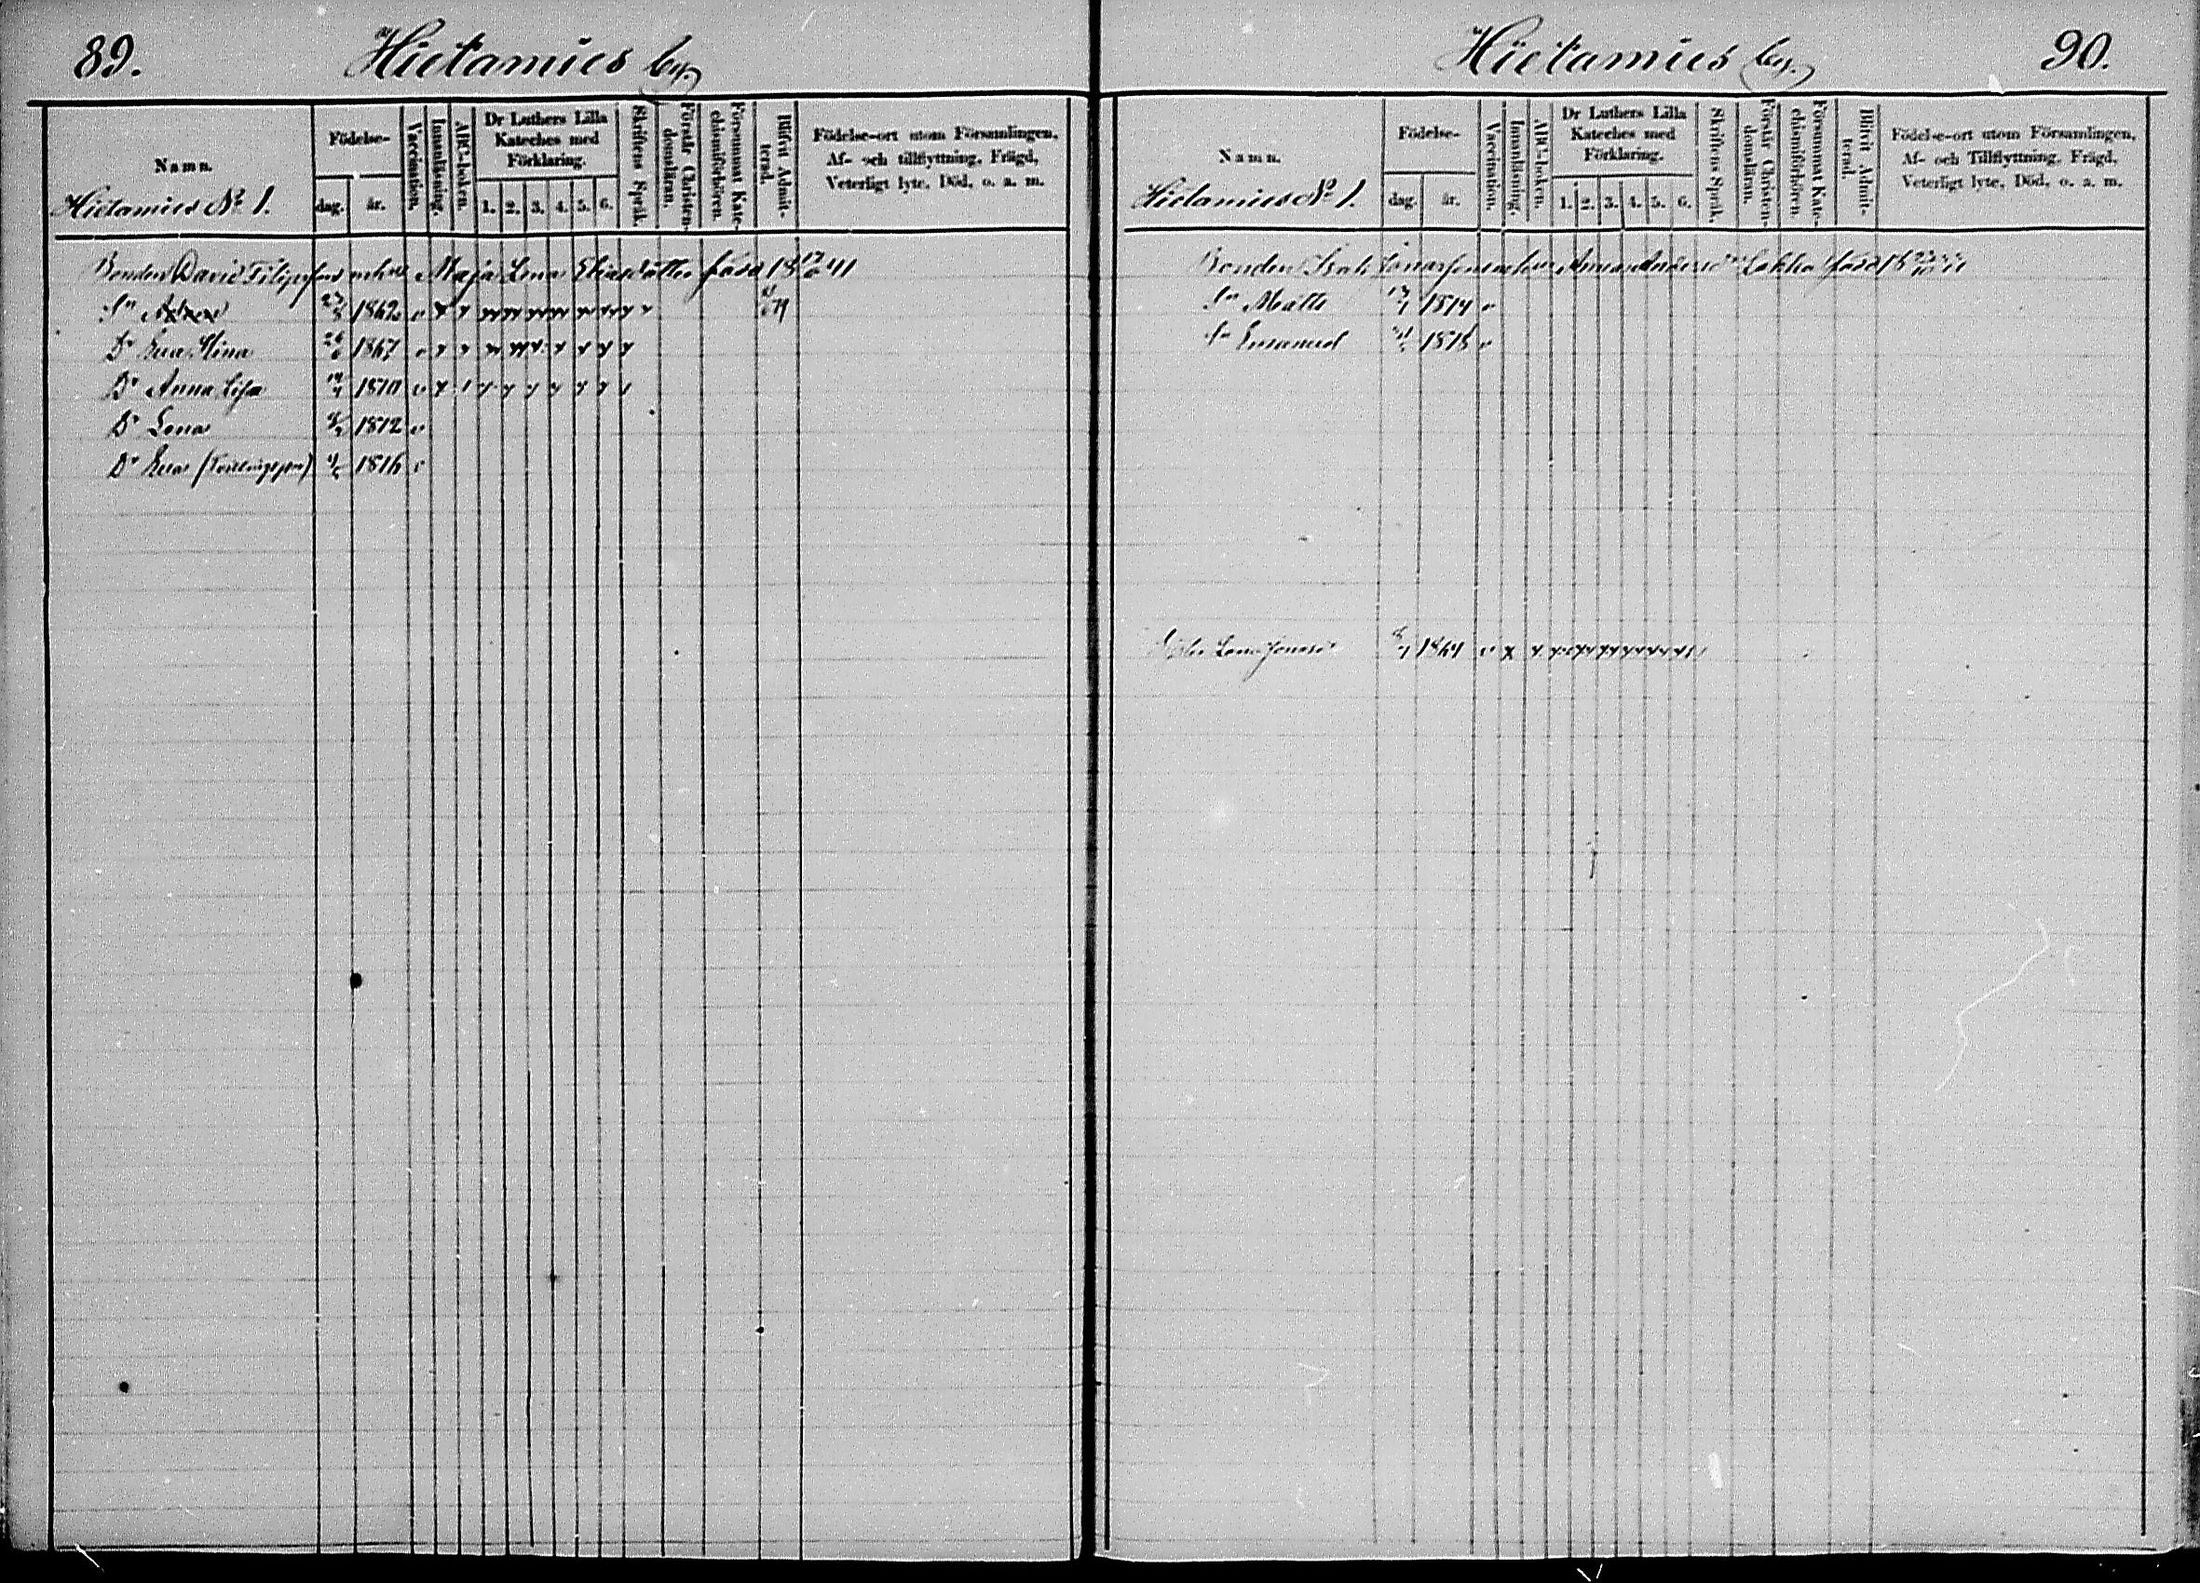 89.
Hietamies by.
Namn.
Hietamies No 1.
Födelse-
dag.
år.
Vaccination.
Innanläsning.
ABC-boken.
Dr Luthers Lilla
Kateches med
Förklaring.
1. 2. 3. 4. 5. 6.
Skriftens Språk.
Förstår Christen-
domsläran.
Försummat Kate-
chismiförhören.
Blifvit Admit-
terad.
Födelse-ort utom Församlingen,
Af- och tillflyttning, Frägd,
Veterligt lyte, Död, o. a. m.
Bonden David Filipsson och hu Maja Lena Eliasdotter född 18 17/6 41
Sn 1862 v
Dr Eva Stina 26/6 1867 v
Dr Anna Lisa 1870 v
Dr Lena 1872 v
Dr Eva 1876 v
Hietamies by.
90.
Namn.
Hietamies No 1.
Födelse-
dag.
år.
Vaccination.
Innanläsning.
ABC-boken.
Dr Luthers Lilla
Kateches med
Förklaring.
1. 2. 3. 4. 5. 6.
Skriftens Språk.
Förstår Christen-
domsläran.
Försummat Kate-
chismiförhören.
Blifvit Admit-
terad.
Födelse-ort utom Församlingen,
Af- och Tillflyttning, Frägd,
Veterligt lyte, Död, o. a. m.
Bonden Isak Jonasson Lakka född 18
Sn Matts 1874 v
Sn Emanuel 1878 v
Lena 1864 v